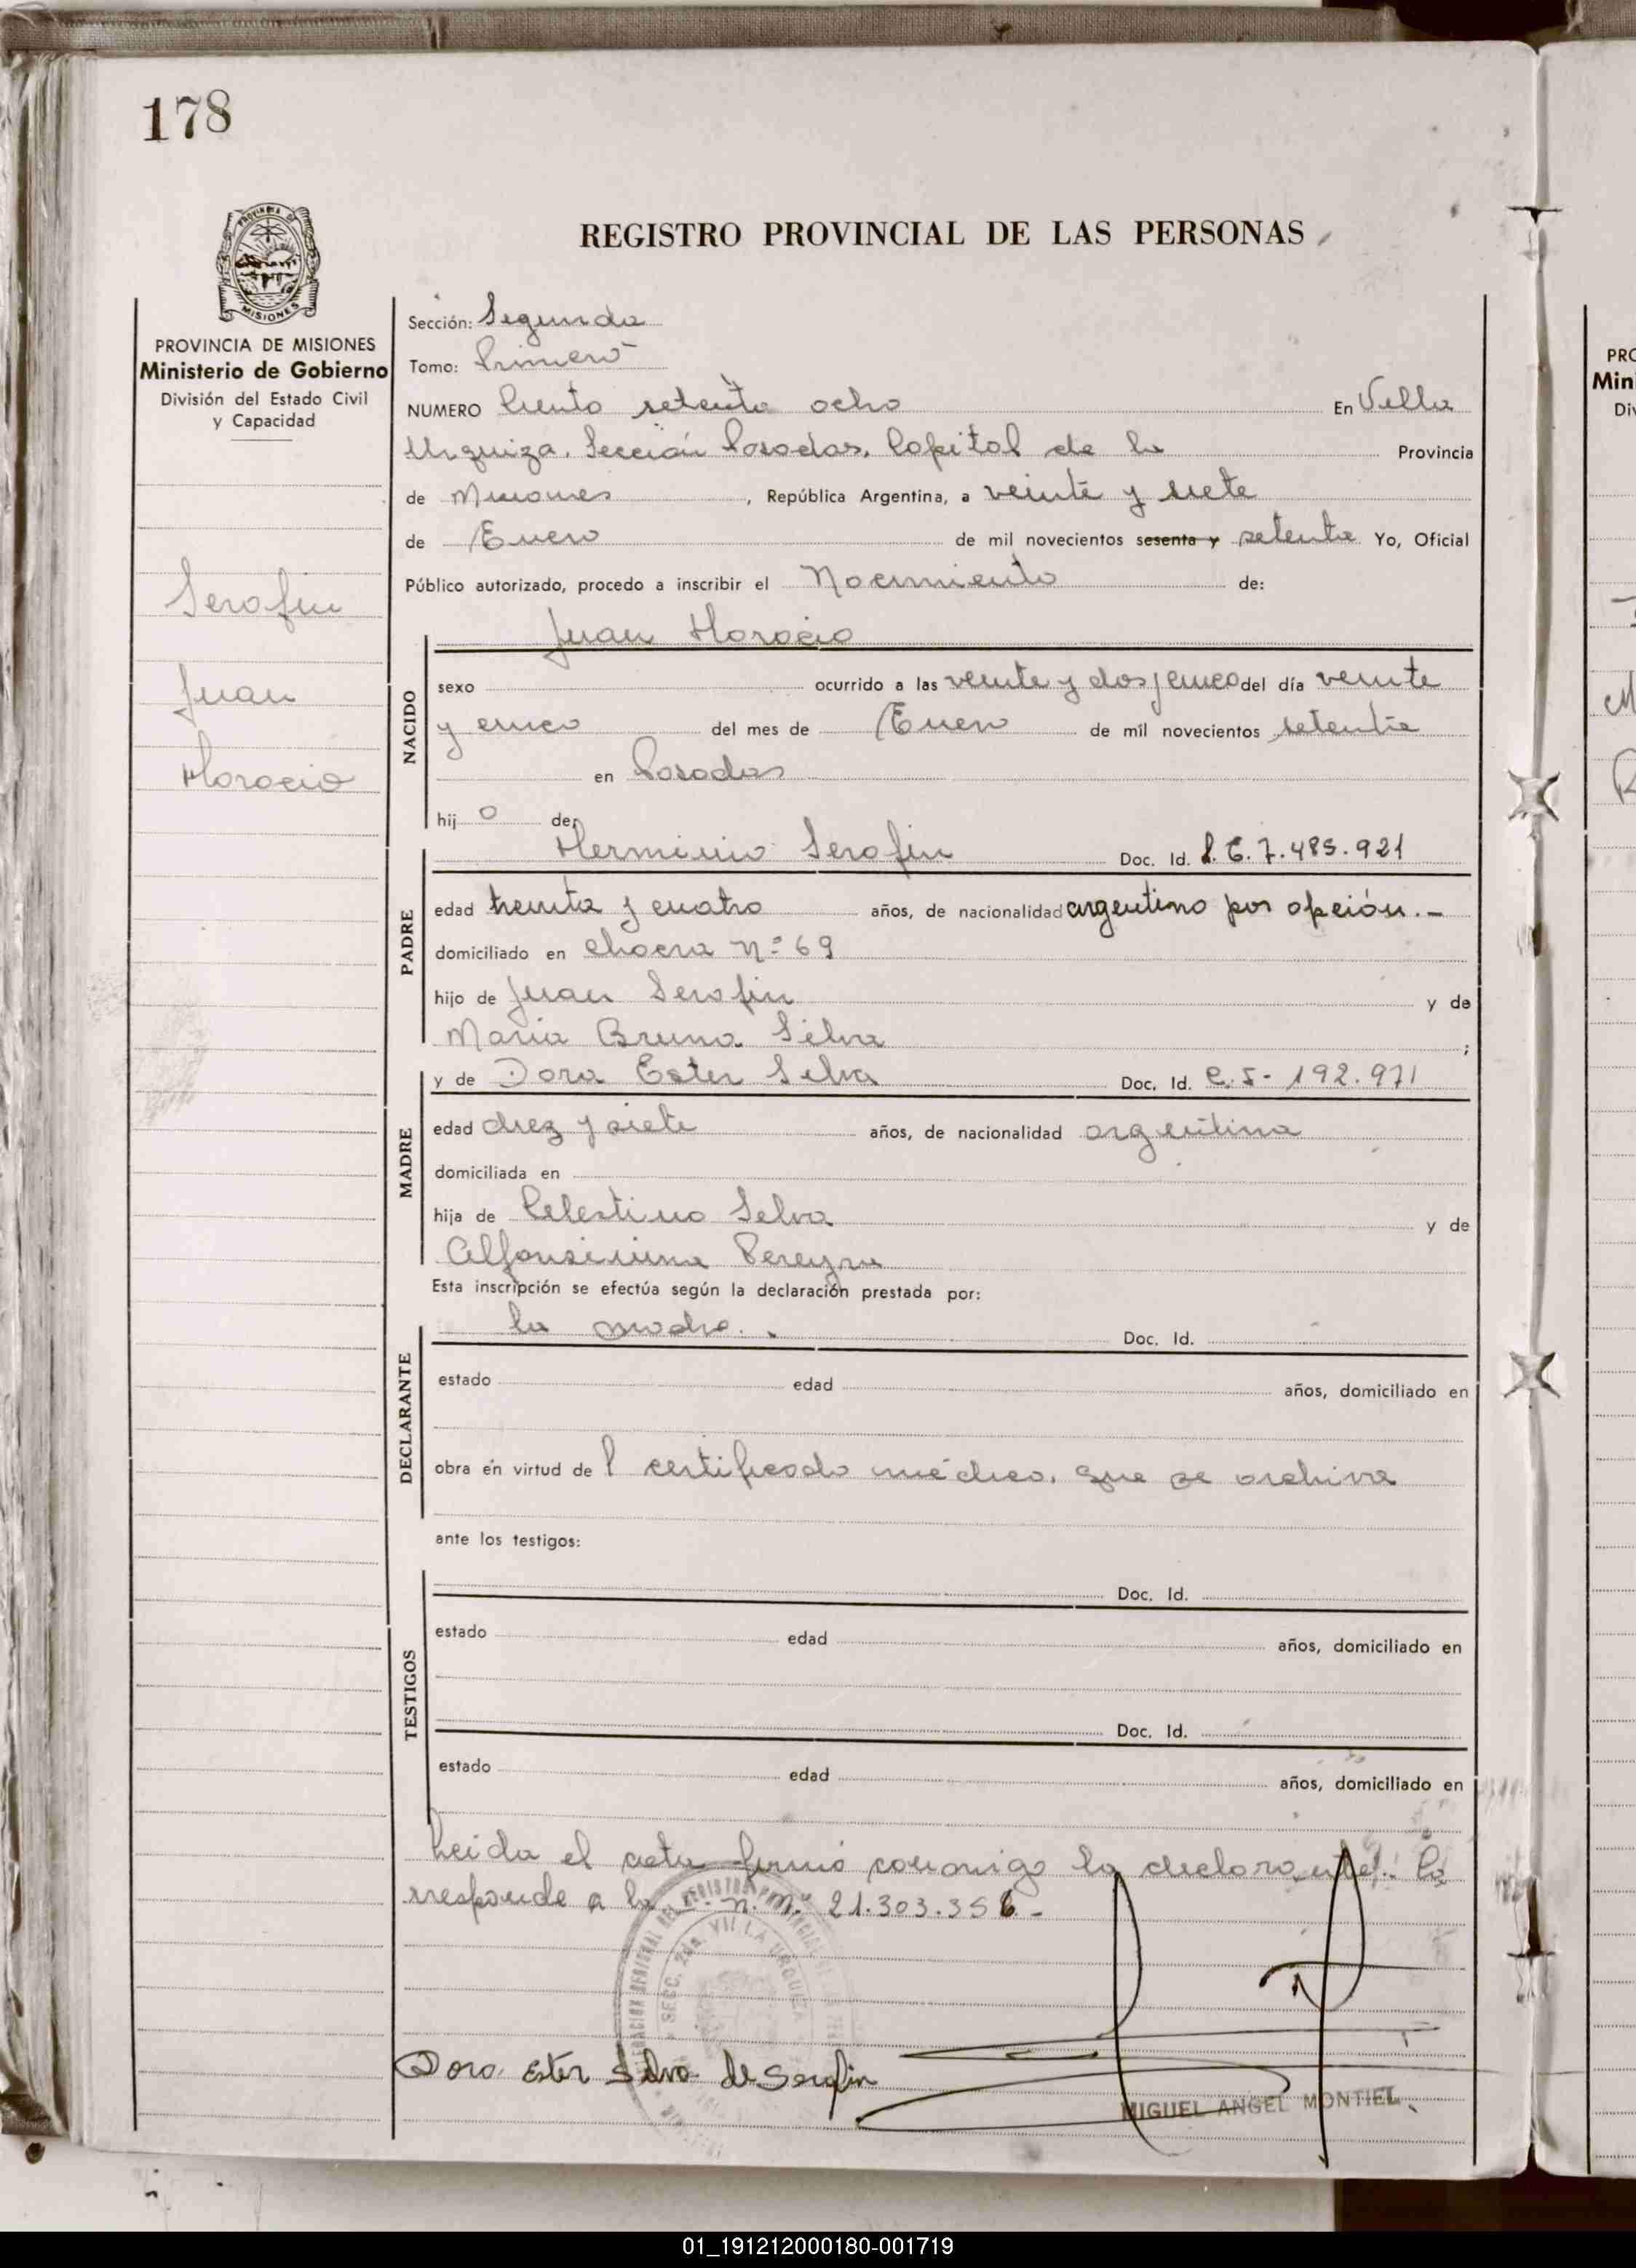 178
REGISTRO PROVINCIAL DE LAS PERSONAS
PROVINCIA DE MISIONES
Ministerio de Gobierno
División del Estado Civil
y Capacidad
Serafin
Juan
Horacio
Sección: Segunda
Tomo: Primero
NUMERO Ciento setenta ocho En Villa
Urquiza, Sección Posadas, Capital de la Provincia
de Misiones, República Argentina, a veinte y siete
de Enero de mil novecientos sesenta y setenta Yo, Oficial
Público autorizado, procedo a inscribir el Nacimiento de:
Juan Horacio
NACIDO
sexo ocurrido a las veinte y dos y cinco del día veinte
y cinco del mes de Enero de mil novecientos setenta
en Posadas
hijo de:
PADRE
Herminio Serafin Doc. Id. 7.485.921
edad treinta y cuatro años, de nacionalidad argentino por opción.-
domiciliado en chacra Nº 69
hijo de Juan Serafin y de
Maria Bruna Silva;
MADRE
y de Dora Ester Silva Doc. Id. C.I- 192.971
edad diez y siete años, de nacionalidad argentina
domiciliada en
hija de Celestino Selva y de
Alfonsinina Pereyra
Esta inscripción se efectúa según la declaración prestada por:
DECLARANTE
la madre. Doc. Id.
estado edad años, domiciliado en
obra en virtud del certificado médico, que se archiva
ante los testigos:
TESTIGOS
Doc. Id.
estado edad años, domiciliado en
Doc. Id.
estado edad años, domiciliado en
Leida el acta firmó conmigo la declarante. Co
rresponde a la n. m. 21.303.356.-
SECC. 2da. VILLA URQUIZA
Dora Ester Silva de Serafin
MIGUEL ANGEL MONTIEL
01_191212000180-001719